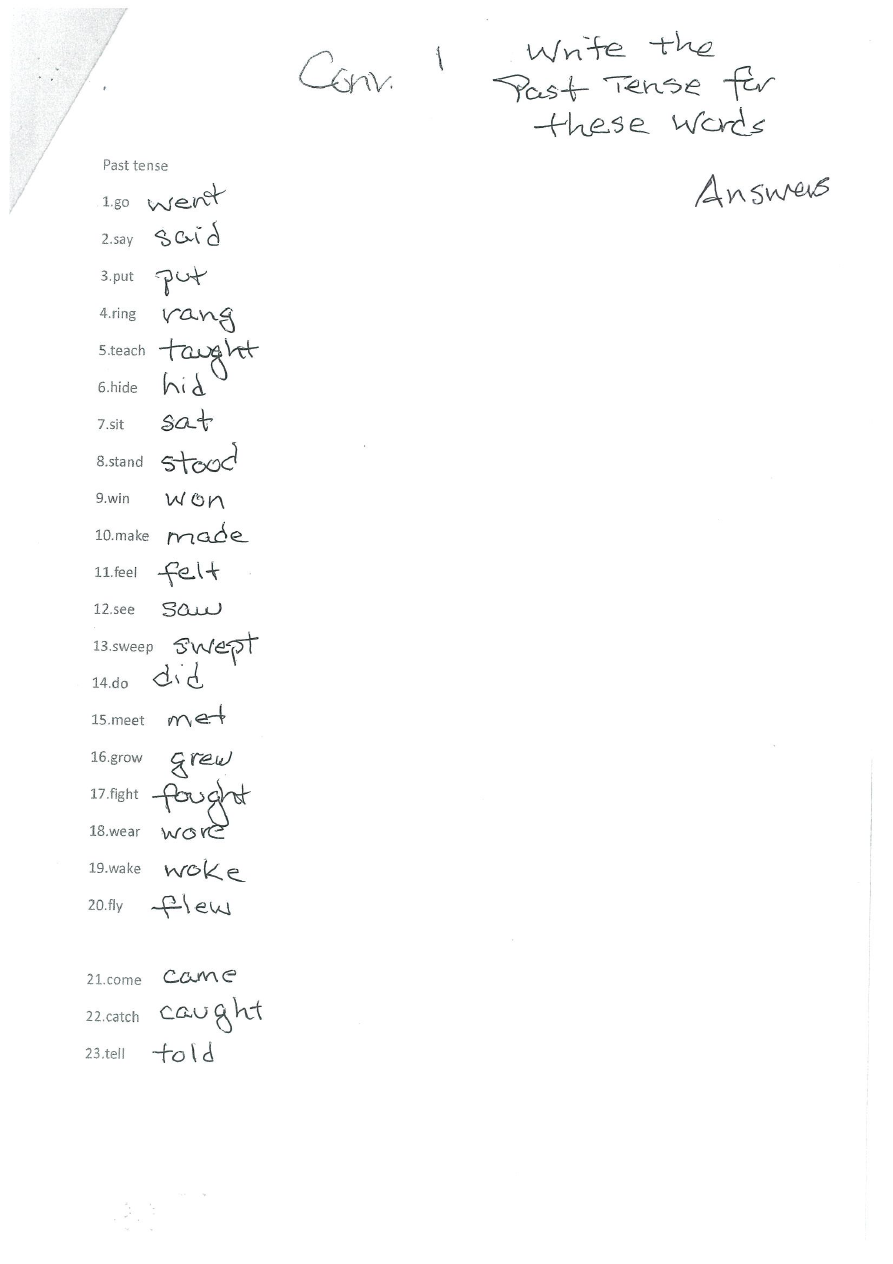 Conv. 1
Write the
Past Tense for
these Words
Answers
Past tense
1.go went
2.say said
3.put put
4.ring rang
5.teach taught
6.hide hid
7.sit sat
8.stand stood
9.win won
10.make made
11.feel felt
12.see saw
13.sweep swept
14.do did
15.meet met
16.grow grew
17.fight fought
18.wear wore
19.wake woke
20.fly flew
21.come came
22.catch caught
23.tell told